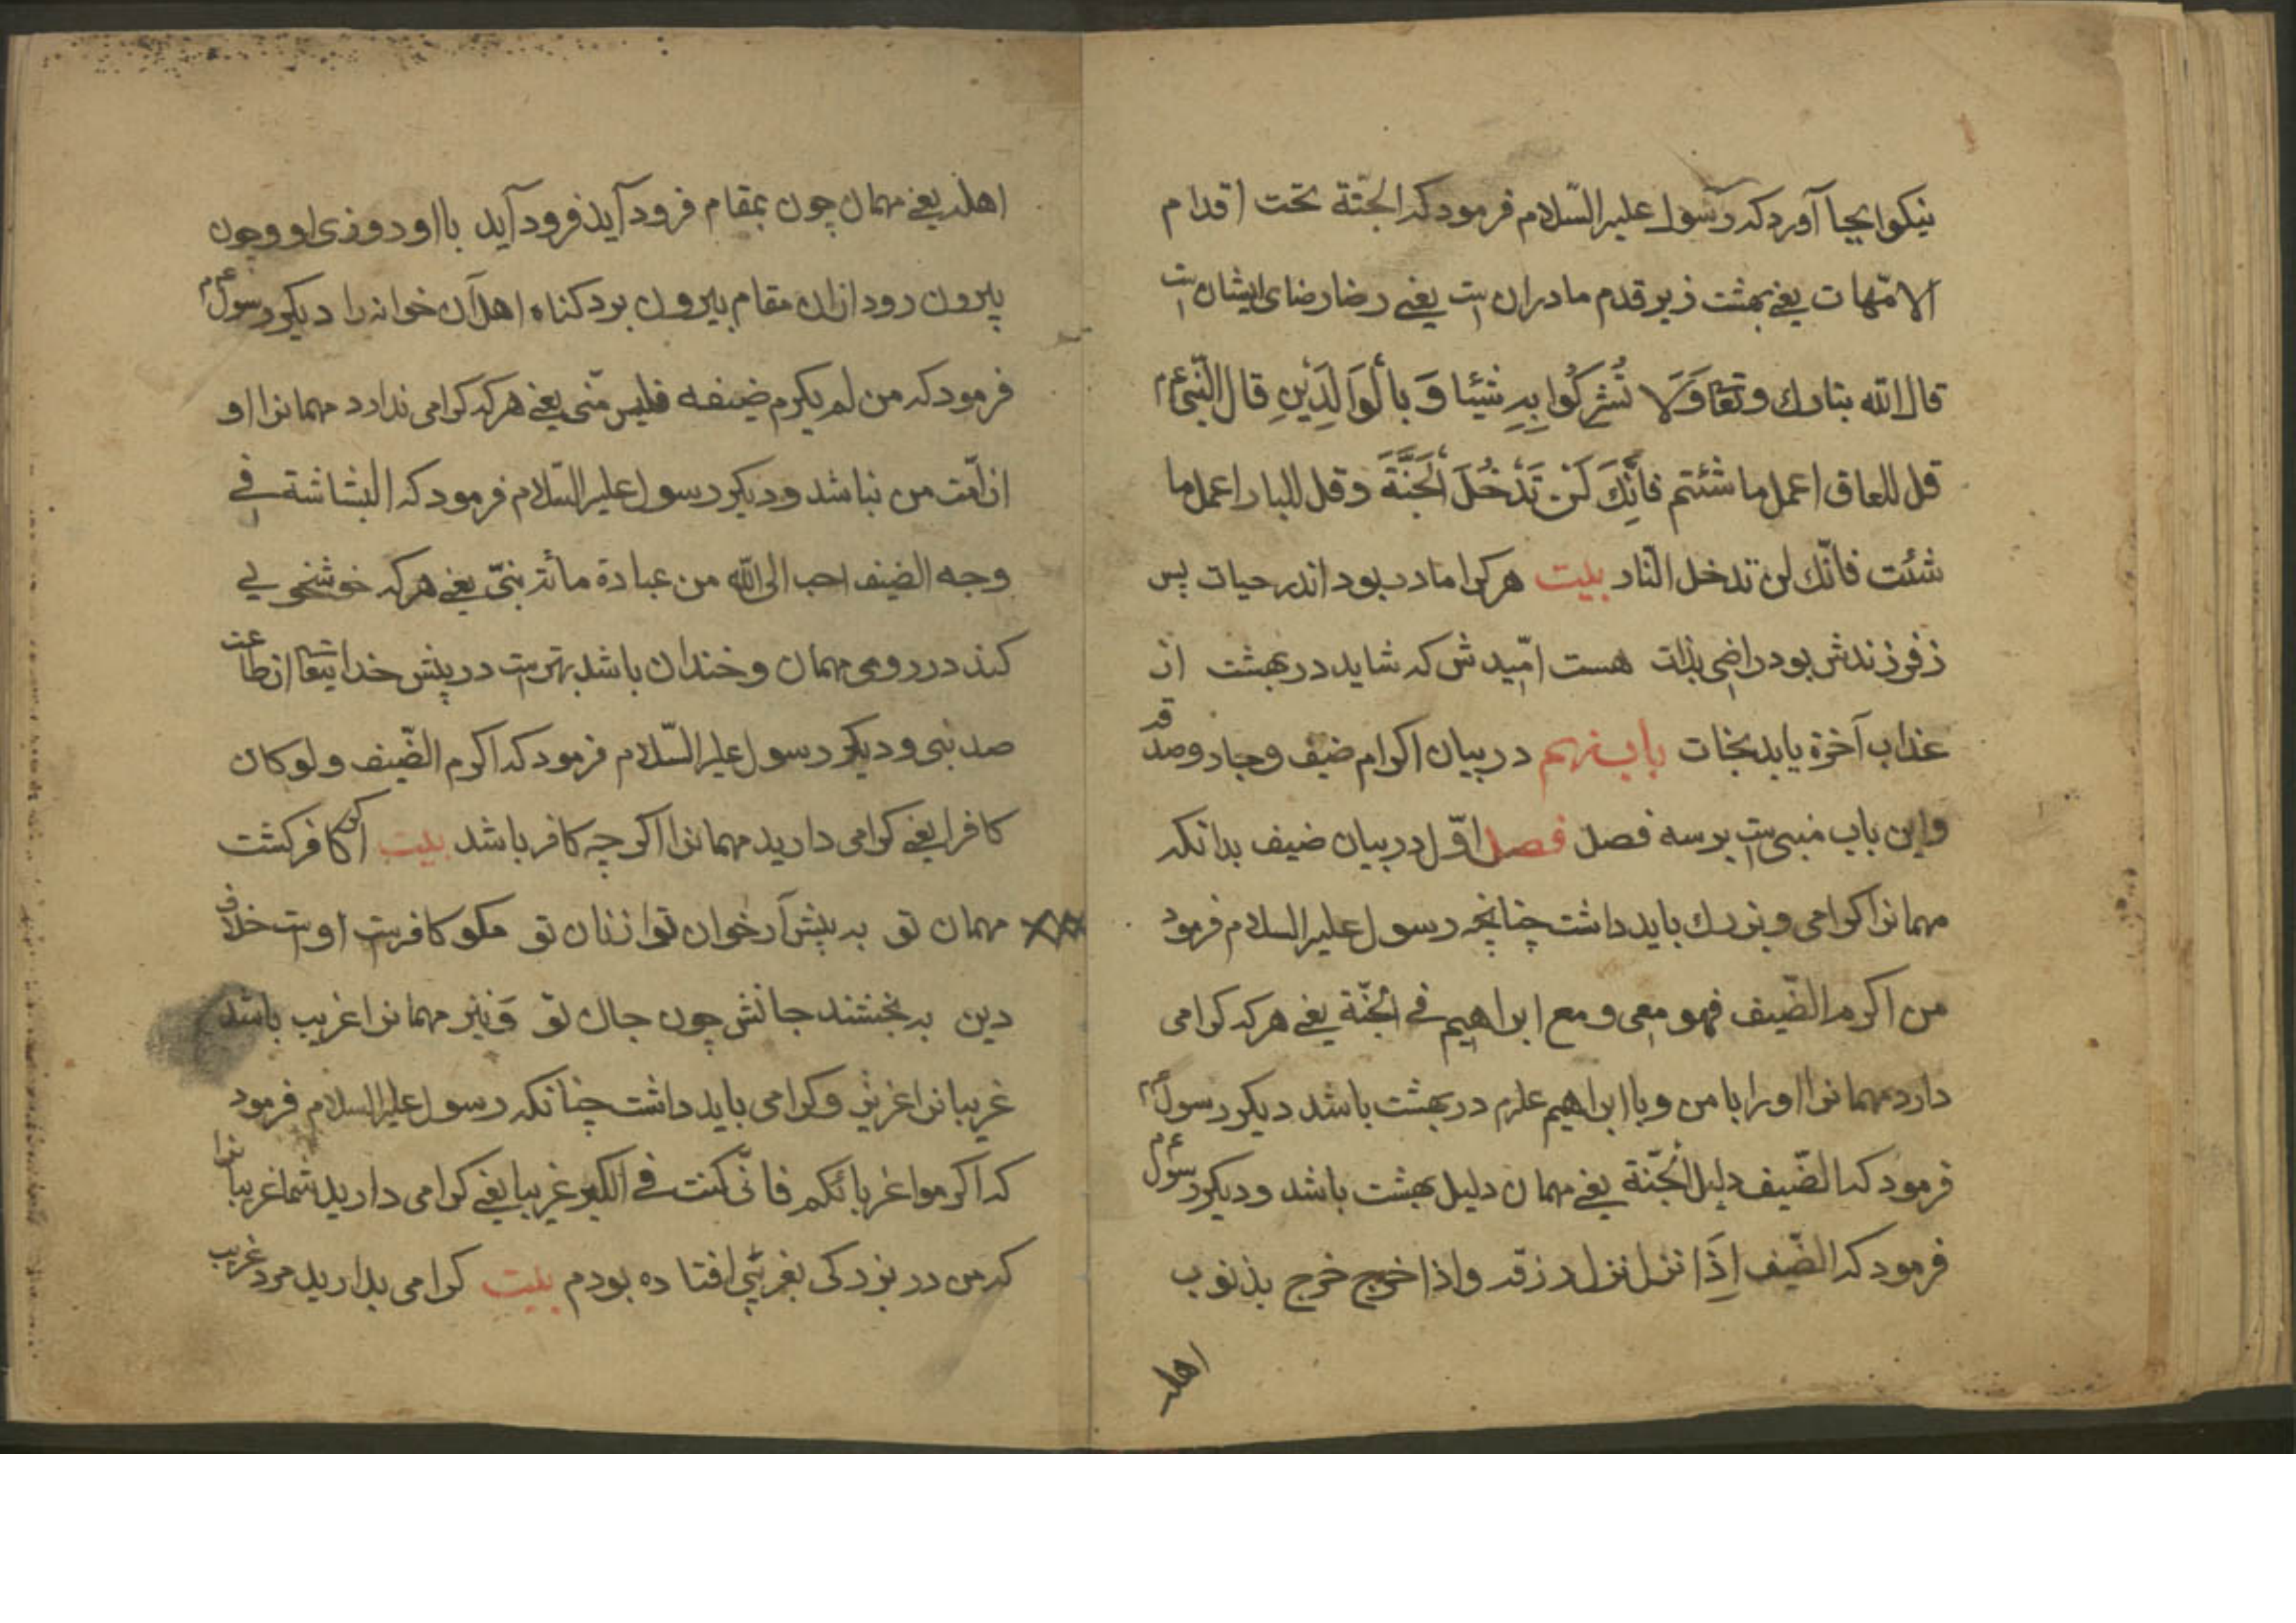 نیکوا بجا آورد که رسول علیه السّلام فرمود که الجنّة تحت اقدام
الامّهات یعنی بهشت زیر قدم مادران است یعنی رضا رضای ایشان است
قال الله تبارك وتعا وَلَا تُشْرِكُوا بِهِ شَيْئًا وَبِالْوَالِدَيْنِ قال النّبی عم
قل للعاق اعمل ما شئتم فَاِنَّكَ لَنْ تَدْخُلَ الْجَنَّةَ وقل للبار اعمل ما
شئت فانّك لن تدخل النّار بیت هر کرا مادر بود اندر حیات پس
ز فرزندش بود راضی بذات هست امّیدش که شاید در بهشت از
عذاب آخرة یابد نجات باب نهم در بیان اکرام ضیف وجار وصدقه
واین باب مبنی است بر سه فصل فصل اوّل در بیان ضیف بدانکه
مهمانرا کرامی وبزرك باید داشت چنانچه رسول علیه السلام فرمود
من اکرم الضّیف فهو معی ومع ابراهیم فی الجنّة یعنی هر که کرامی
دارد مهمانرا اورا با من وبا ابراهیم علیه م در بهشت باشد دیکر رسول عم
فرمود که الضّیف دلیل الْجَنّة یعنی مهمان دلیل بهشت باشد ودیکر رسول عم
فرمود که الضّیف اِذَا نزل نزل رزقه واذا خرج خرج بذنوب
اهله
اهله یعنی مهمان چون بمقام فرود آید فرود آید با او روزی او وچون
بیرون رود ازان مقام بیرون برد کناه اهل آن خوانه را دیکر رسول عم
فرمود که من لم یکرم ضیفه فلیس منّی یعنی هر که کرامی ندارد مهمانرا او
از امّت من نباشد ودیکر رسول علیه السّلام فرمود که البشاشة فی
وجه الضیف احب الی الله من عبادة مائة نبیّ یعنی هر که خوشخویی
کند در روی مهمان وخندان باشد بهتر است در پیش خدایتعا از طاعت
صد نبی ودیکر رسول علیه السّلام فرمود که اکرم الضّیف ولو کان
کافرا یعنی کرامی دارید مهمانرا اکرچه کافر باشد بیت اکر کافر کشت
مهمان تو به پیش آر خوان تو از نان تو مکو کافرست او است خلاف
دین به بخشند جانش چون جان تو وَنیز مهمانرا غریب باشد
غریبانرا عزیز وکرامی باید داشت چنانکه رسول علیه السلام فرمود
که اکرموا غربائکم فانّی کنت فی الکبر غریبا یعنی کرامی دارید شما غریبانرا
که من در بزرکی بغریبی افتاده بودم بیت کرامی بدارید مرد غریب